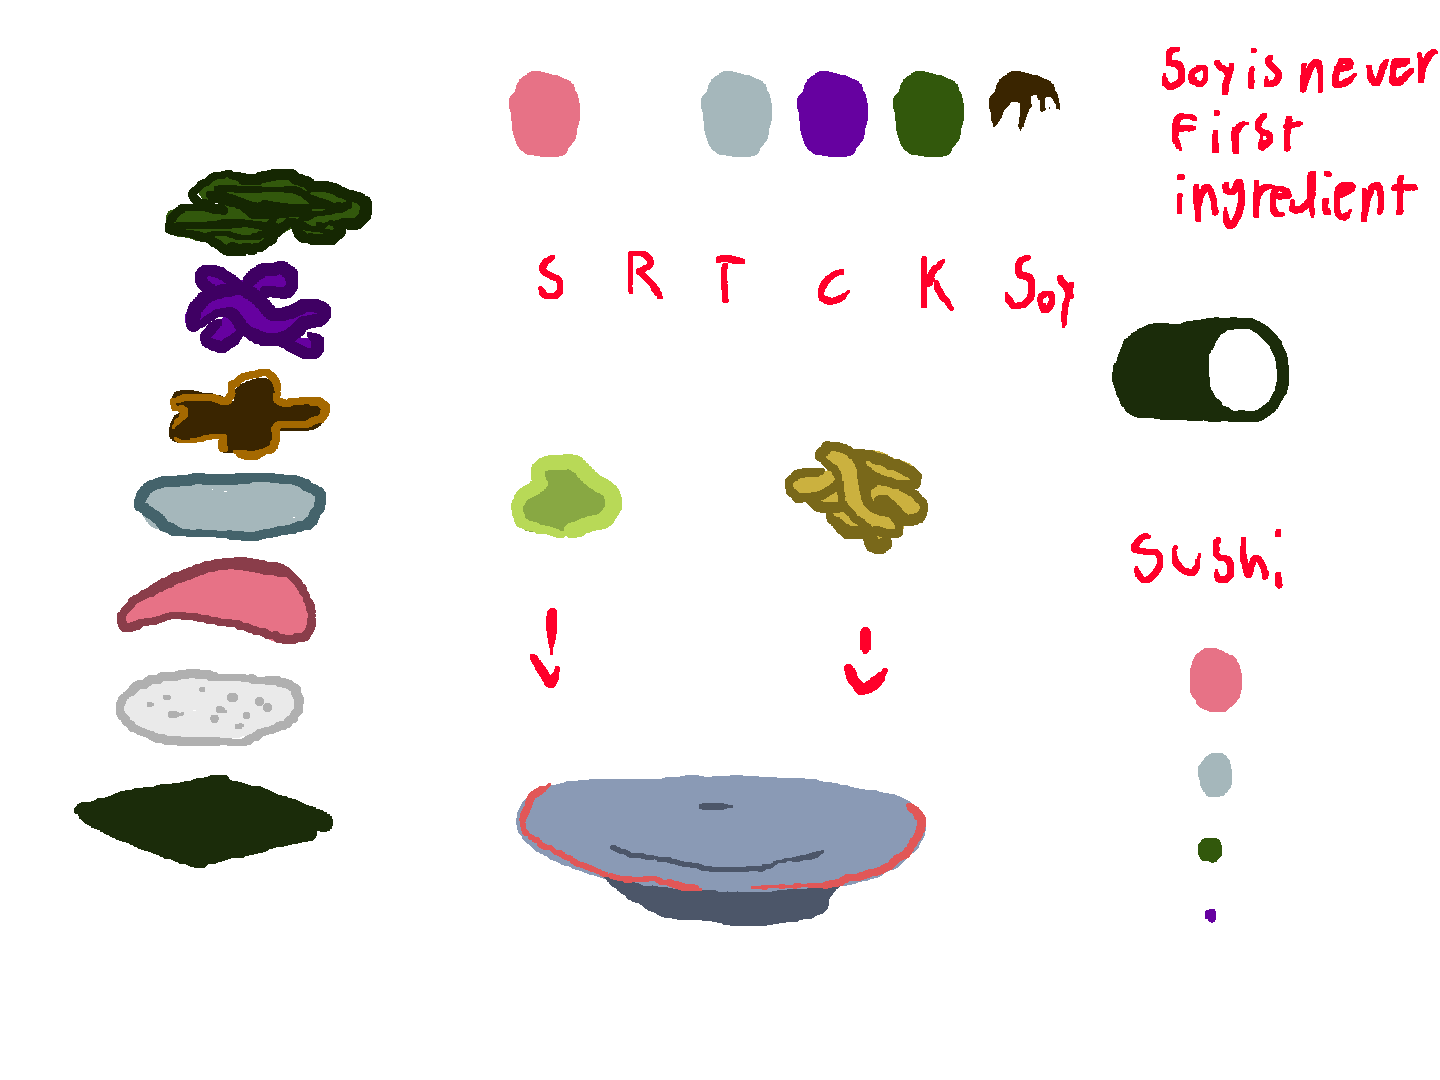 Soy is never
First
ingredient
S R T C K Soy
Sushi